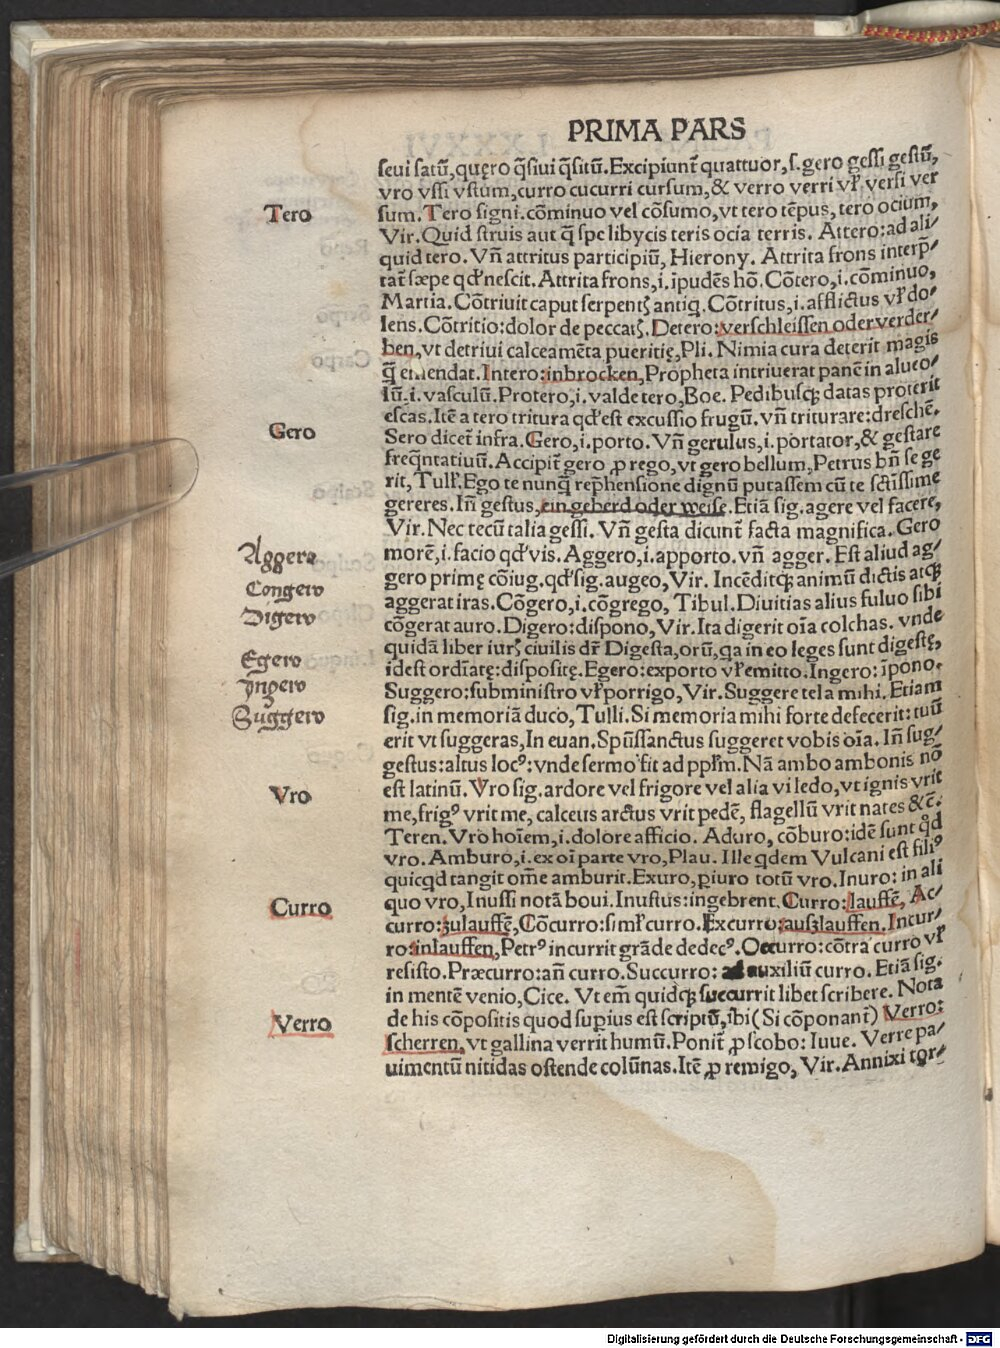 PRIMA PARS
seui satū, quęro q̄siui q̄sitū. Excipiunt̄ quattuor, s. gero gessi gestū,
vro vssi vstum, curro cucurri cursum, & verro verri vl̄ versi ver
Tero
sum. Tero signi. cōminuo vel cōsumo, vt tero tēpus, tero ocium,
Vir. Quid struis aut q̄ spe libycis teris ocia terris. Attero: ad ali⸗
quid tero. Vn̄ attritus participiū, Hierony. Attrita frons interp̄⸗
tat̄ sæpe qd' nescit. Attrita frons, i. īpudēs hō. Cōtero, i. cōminuo,
Martia. Cōtriuit caput serpentꝭ antiq. Cōtritus, i. afflictus vl̄ do⸗
lens. Cōtritio: dolor de peccatꝭ. Detero: verschleissen oder verder⸗
ben, vt detriui calceamēta pueritię, Pli. Nimia cura deterit magis
q̄ emendat. Intero: inbrocken, Propheta intriuerat panē in alueo⸗
lū. i. vasculū. Protero, i. valde tero, Boe. Pedibusqꝫ datas proterit
escas. Itē a tero tritura qd' est excussio frugū. vn̄ triturare: dreschē.
Gero
Sero dicet̄ infra. Gero, i. porto. Vn̄ gerulus, i. portator, & gestare
freq̄ntatiuū. Accipit̄ gero ꝓ rego, vt gero bellum, Petrus bn̄ se ge
rit, Tull'. Ego te nunq̄ rep̄hensione dignū putassem cū te sc̄tissime
gereres. In̄ gestus, ein geberd oder weise. Etiā sig. agere vel facere,
Vir. Nec tecū talia gessi. Vn̄ gesta dicunt̄ facta magnifica. Gero
Aggero
morē, i. facio qd' vis. Aggero, i. apporto. vn̄ agger. Est aliud ag⸗
Congero
gero primę cōiug. qd' sig. augeo, Vir. Incēditqꝫ animū dictis atqꝫ
aggerat iras. Cōgero, i. cōgrego, Tibul. Diuitias alius fuluo sibi
Digero
cōgerat auro. Digero: dispono, Vir. Ita digerit oīa colchas. vnde
quidā liber iurꝭ ciuilis dr̄ Digesta, orū, qa in eo leges sunt digestę,
Egero
idest ordīatę: dispositę. Egero: exporto vl̄ emitto. Ingero: īpono.
Yngero
Suggero: subministro vl̄ porrigo, Vir. Suggere tela mihi. Etiam
Suggero
sig. in memoriā duco, Tulli. Si memoria mihi forte defecerit: tuū
erit vt suggeras, In euan. Spūssanctus suggeret vobis oīa. In̄ sug⸗
gestus: altus locꝰ: vnde sermo fit ad ppl̄m. Nā ambo ambonis nō
Vro
est latinū. Vro sig. ardore vel frigore vel alia vi ledo, vt ignis vrit
me, frigꝰ vrit me, calceus arctus vrit pedē, flagellū vrit nates &c̄.
Teren. Vro hoīem, i. dolore afficio. Aduro, cōburo: idē sunt qd
vro. Amburo, i. ex oī parte vro, Plau. Ille qdem Vulcani est filiꝰ
quicqd tangit om̄e amburit. Exuro, ꝑuro totū vro. Inuro: in ali
Curro
quo vro, Inussi notā boui. Inustus: ingebrent. Curro: lauffē, Ac⸗
curro: zulauffē, Cōcurro: siml̄ curro. Excurro: auszlauffen. Incur⸗
ro: inlauffen, Petrꝰ incurrit grāde dedecꝰ. Occurro: cōtra curro vl̄
resisto. Præcurro: an̄ curro. Succurro: ad auxiliū curro. Etiā sig.
in mentē venio, Cice. Vt em̄ quidqꝫ succurrit libet scribere. Nota
Verro
de his cōpositis quod supius est scriptū, ibi (Si cōponant̄) Verro:
scherren, vt gallina verrit humū. Ponit̄ ꝓ scobo: Iuue. Verre pa⸗
uimentū nitidas ostende colūnas. Itē ꝓ remigo, Vir. Annixi tor⸗
Digitalisierung gefördert durch die Deutsche Forschungsgemeinschaft - DFG